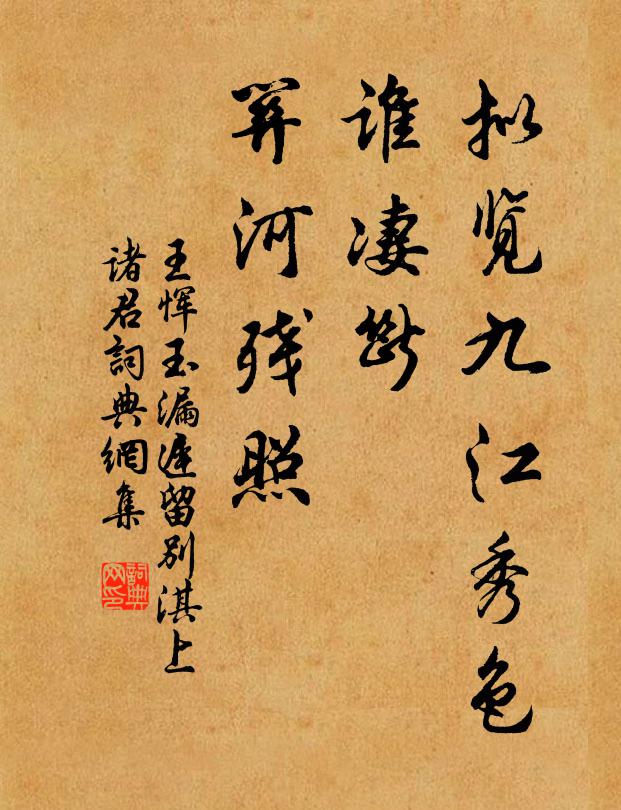 拟览九江秀色
谁凄断
关河残照
王恽玉漏迟留别淇上
诸君詞典網集
詞典
网印